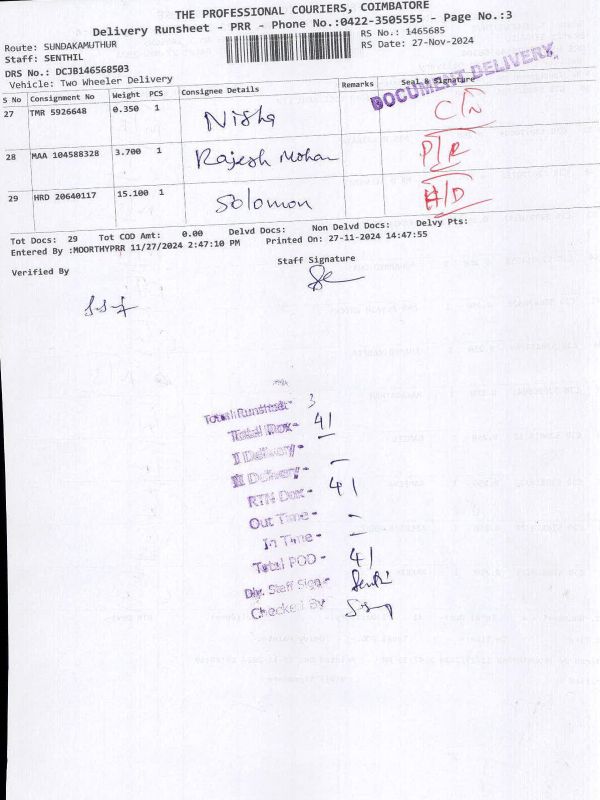 THE PROFESSIONAL COURIERS, COIMBATORE
Delivery Runsheet - PRR - Phone No.:0422-3505555 - Page No.:3
Route: SUNDAKAMUTHUR
RS No.: 1465685
Staff: SENTHIL
RS Date: 27-Nov-2024
DRS No.: DCJB146568503
Vehicle: Two Wheeler Delivery
DOCUMENT DELIVERY
S No Consignment No Weight PCS Consignee Details Remarks Seal & Signature
27 TMR 5926648 0.350 1 Nisha C/N
28 MAA 104588328 3.700 1 Rajesh Mohan P/R
29 HRD 20640117 15.100 1 Solomon H/D
Tot Docs: 29 Tot COD Amt: 0.00 Delvd Docs: Non Delvd Docs: Delvy Pts:
Entered By :MOORTHYPRR 11/27/2024 2:47:10 PM Printed On: 27-11-2024 14:47:55
Verified By
Staff Signature
Total Runsheet - 3
Total Dox - 41
I Delivery -
II Delivery -
RTN Dox - 41
Out Time -
In Time -
Total POD - 41
Dly. Staff Sign -
Checked By